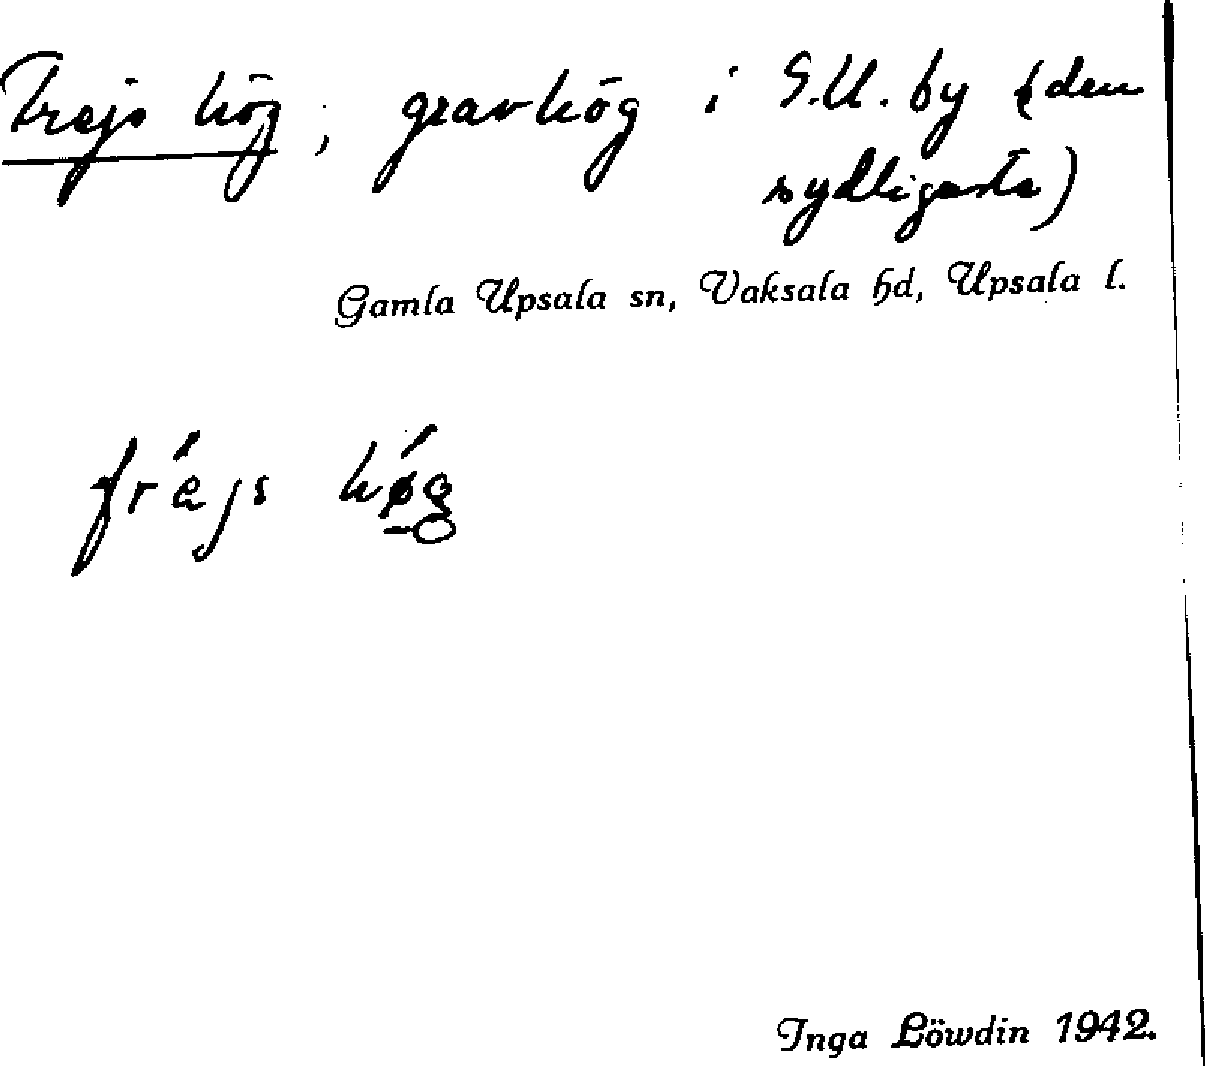 Frejs hög, gravhög i G.U. by (den
sydligaste)
Gamla Upsala sn, Vaksala hd, Upsala l.
fréjs hǿ̱g
Inga Löwdin 1942.